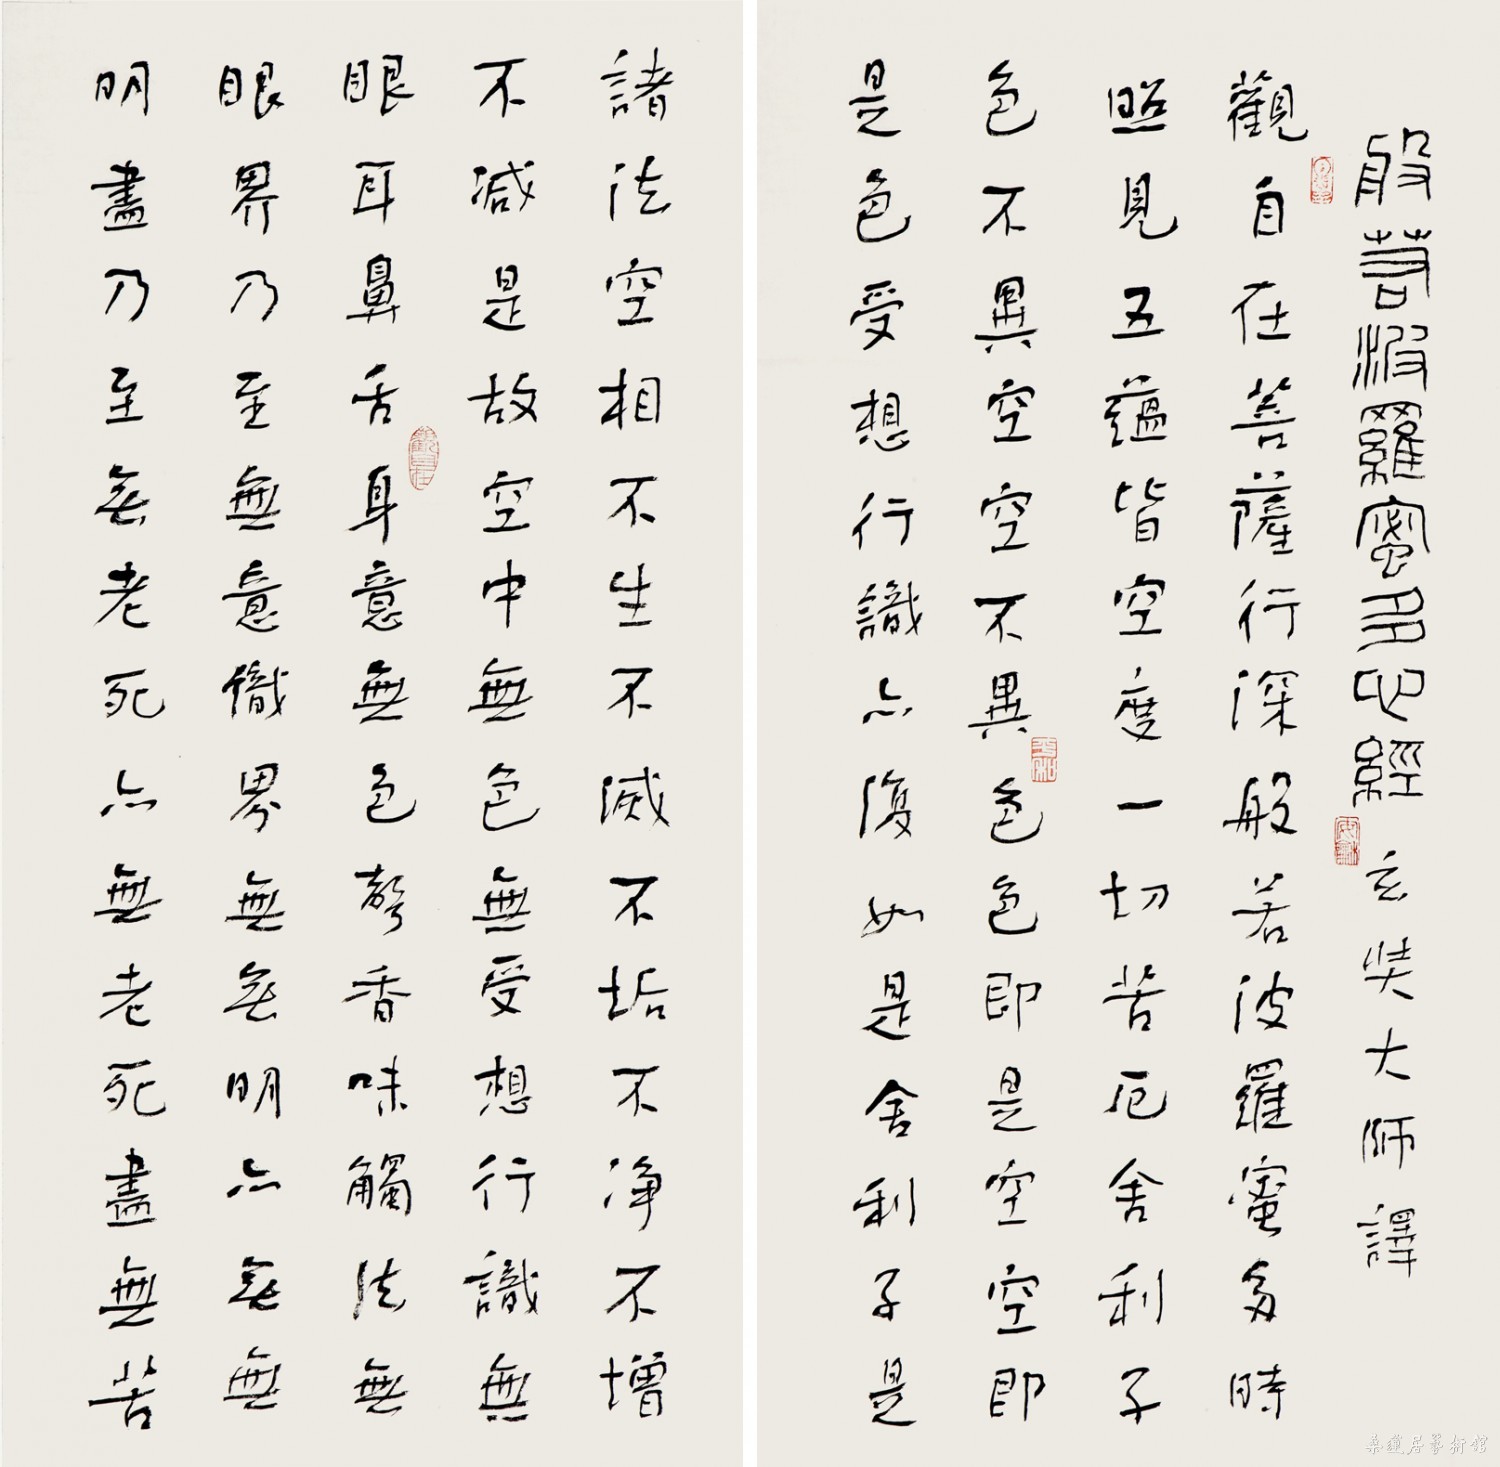 般若波羅蜜多心經 玄奘大師譯
觀自在菩薩行深般若波羅蜜多時
照見五蘊皆空度一切苦厄舍利子
色不異空空不異色色即是空空即
是色受想行識亦復如是舍利子是
諸法空相不生不滅不垢不净不增
不減是故空中無色無受想行識無
眼耳鼻舌身意無色聲香味觸法無
眼界乃至無意識界無無明亦無無
明盡乃至無老死亦無老死盡無苦
觀自在
桑蓮居藝術館